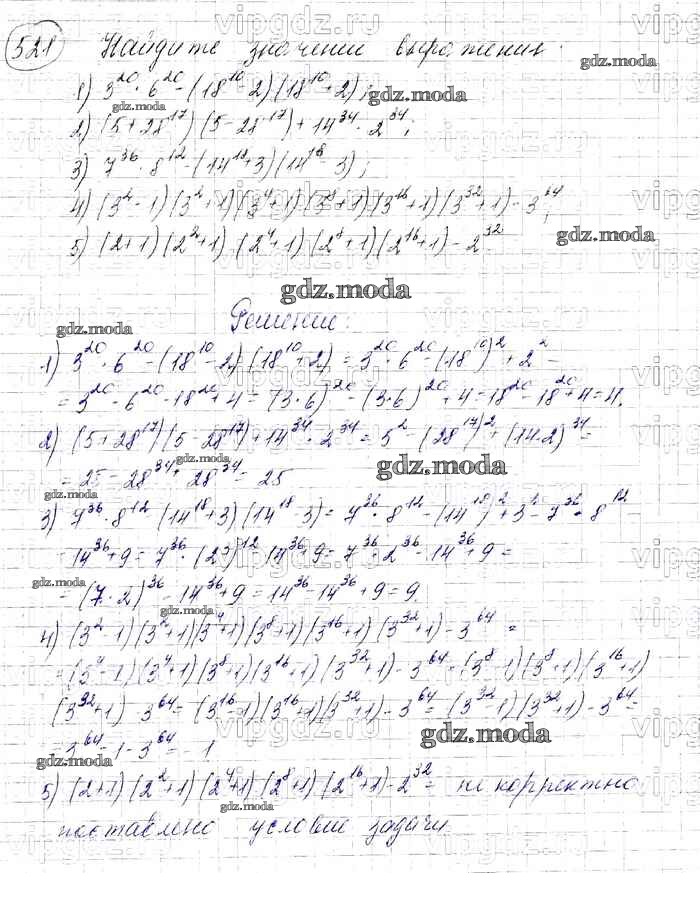 521 Найдите значении выражения:
1) 3^20 · 6^20 - (18^10 - 2)(18^10 + 2);
2) (5 + 28^17)(5 - 28^17) + 14^34 · 2^34;
3) 7^36 · 8^12 - (14^18 + 3)(14^18 - 3);
4) (3^2 - 1)(3^2 + 1)(3^4 + 1)(3^8 + 1)(3^16 + 1)(3^32 + 1) - 3^64;
5) (2 + 1)(2^2 + 1)(2^4 + 1)(2^8 + 1)(2^16 + 1) - 2^32.
gdz.moda
Решение:
1) 3^20 · 6^20 - (18^10 - 2)(18^10 + 2) = 3^20 · 6^20 - (18^10)^2 + 2^2 =
= 3^20 · 6^20 - 18^20 + 4 = (3 · 6)^20 - (3 · 6)^20 + 4 = 18^20 - 18^20 + 4 = 4.
2) (5 + 28^17)(5 - 28^17) + 14^34 · 2^34 = 5^2 - (28^17)^2 + (14 · 2)^34 =
= 25 - 28^34 + 28^34 = 25
3) 7^36 · 8^12 (14^18 + 3)(14^18 - 3) = 7^36 · 8^12 - (14^18)^2 + 3^2 = 7^36 · 8^12 -
14^36 + 9 = 7^36 · (2^3)^12 14^36 + 9 = 7^36 · 2^36 - 14^36 + 9 =
= (7 · 2)^36 - 14^36 + 9 = 14^36 - 14^36 + 9 = 9.
4) (3^2 - 1)(3^2 + 1)(3^4 + 1)(3^8 + 1)(3^16 + 1)(3^32 + 1) - 3^64 =
(3^4 - 1)(3^4 + 1)(3^8 + 1)(3^16 + 1)(3^32 + 1) - 3^64 = (3^8 - 1)(3^8 + 1)(3^16 + 1)
(3^32 + 1) 3^64 = (3^16 - 1)(3^16 + 1)(3^32 + 1) - 3^64 = (3^32 - 1)(3^32 + 1) - 3^64 =
3^64 - 1 - 3^64 = - 1
5) (2 + 1)(2^2 + 1)(2^4 + 1)(2^8 + 1)(2^16 + 1) - 2^32 = не корректно
поставлено условие задачи.